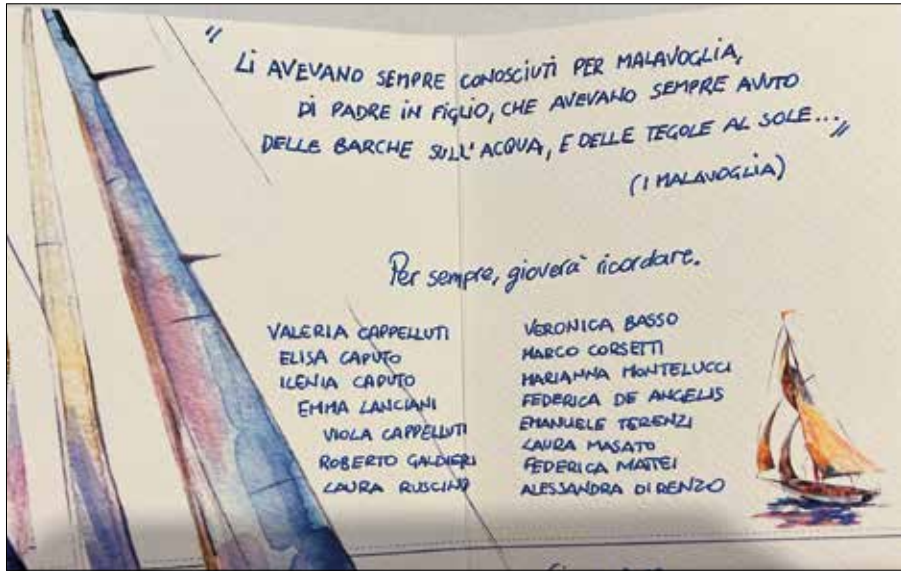 "
LI AVEVANO SEMPRE CONOSCIUTI PER MALAVOGLIA,
DI PADRE IN FIGLIO, CHE AVEVANO SEMPRE AVUTO
DELLE BARCHE SULL'ACQUA, E DELLE TEGOLE AL SOLE... "
(I MALAVOGLIA)
Per sempre, gioverà ricordare.
VALERIA CAPPELLUTI
ELISA CAPUTO
ILENIA CAPUTO
EMMA LANCIANI
VIOLA CAPPELLUTI
ROBERTO GALDIERI
LAURA RUSCINO
VERONICA BASSO
MARCO CORSETTI
MARIANNA MONTELUCCI
FEDERICA DE ANGELIS
EMANUELE TERENZI
LAURA MASATO
FEDERICA MATTEI
ALESSANDRA DI RENZO